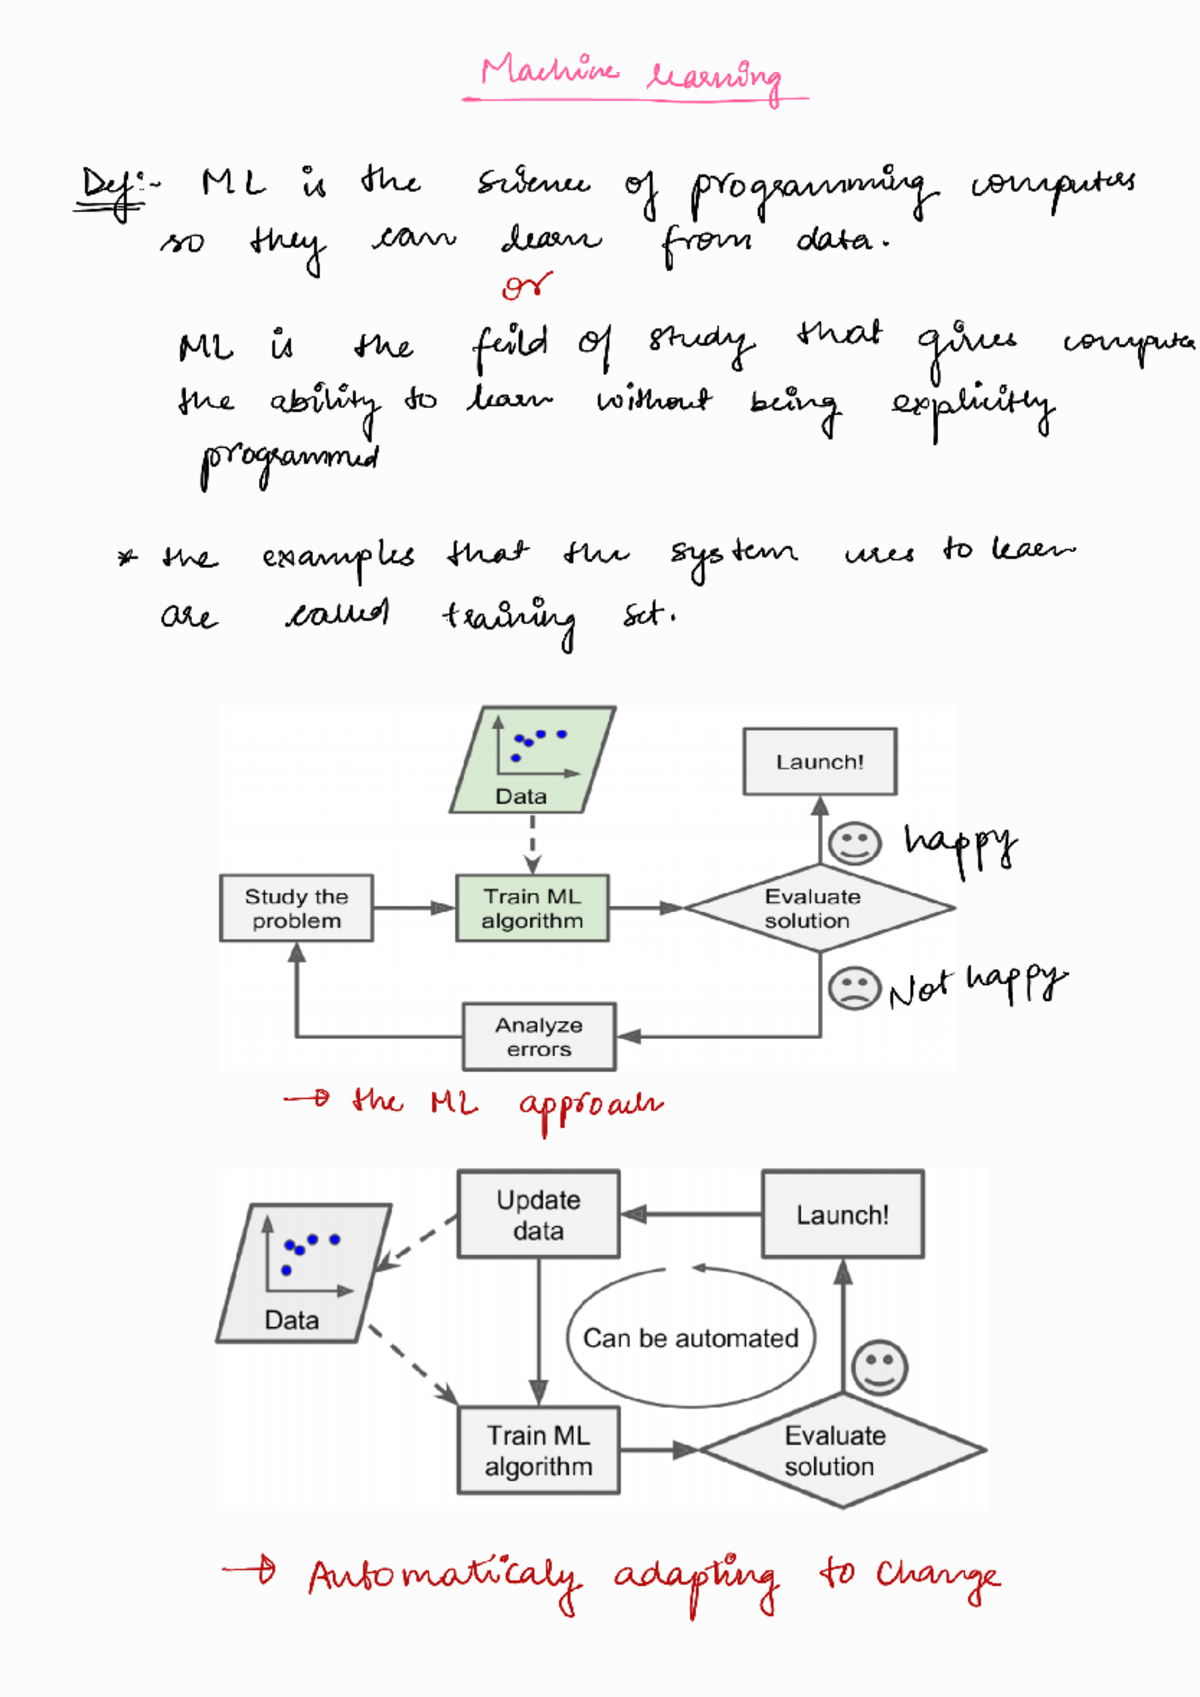 Machine learning
Def:- ML is the science of programming computers
so they can learn from data.
or
ML is the feild of study that gives compute
the ability to learn without being explicitly
programmed
* the examples that the system uses to learn
are called training set.
Data
Launch!
happy
Study the
problem
Train ML
algorithm
Evaluate
solution
Not happy
Analyze
errors
→ the ML approach
Update
data
Launch!
Data
Can be automated
Train ML
algorithm
Evaluate
solution
→ Automaticaly adapting to change